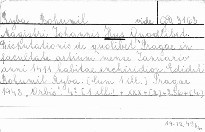 Ryba Bohumil vide CR 3163
Magistri Johannis Hus Quodlibet.
Disputationis de quolibet Pragae in
facultate artium mense Januario
anni 1411 habitae enchiridion. Edidit
Bohumil Ryba. (Cum 1 ill.) Pragae
1948, "Orbis". 4° (1 ill. +